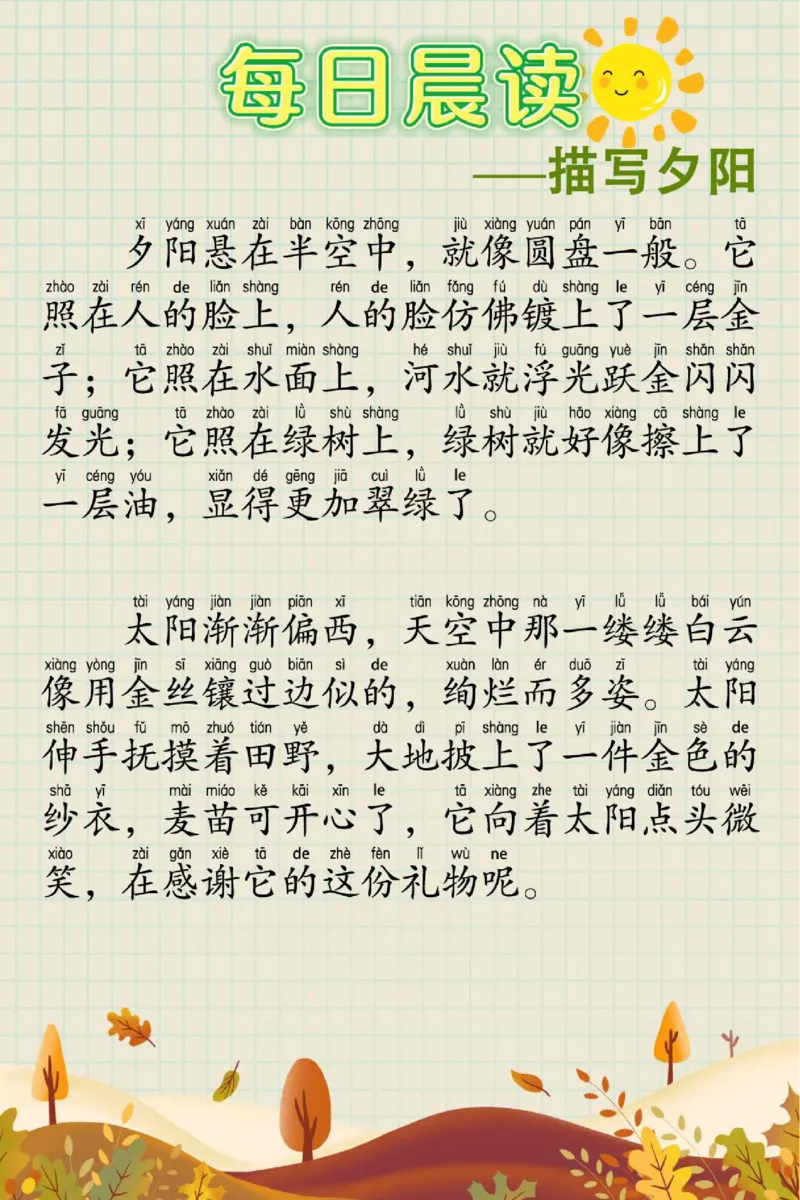 每日晨读
——描写夕阳
xī yáng xuán zài bàn kōng zhōng jiù xiàng yuán pán yī bān tā
夕阳悬在半空中，就像圆盘一般。它
zhào zài rén de liǎn shàng rén de liǎn fǎng fú dù shàng le yī céng jīn
照在人的脸上，人的脸仿佛镀上了一层金
zǐ tā zhào zài shuǐ miàn shàng hé shuǐ jiù fú guāng yuè jīn shǎn shǎn
子；它照在水面上，河水就浮光跃金闪闪
fā guāng tā zhào zài lǜ shù shàng lǜ shù jiù hǎo xiàng cā shàng le
发光；它照在绿树上，绿树就好像擦上了
yī céng yóu xiǎn dé gēng jiā cuì lǜ le
一层油，显得更加翠绿了。
tài yáng jiàn jiàn piān xī tiān kōng zhōng nà yī lǚ lǚ bái yún
太阳渐渐偏西，天空中那一缕缕白云
xiàng yòng jīn sī xiāng guò biān sì de xuàn làn ér duō zī tài yáng
像用金丝镶过边似的，绚烂而多姿。太阳
shēn shǒu fǔ mō zhuó tián yě dà dì pī shàng le yī jiàn jīn sè de
伸手抚摸着田野，大地披上了一件金色的
shā yī mài miáo kě kāi xīn le tā xiàng zhe tài yáng diǎn tóu wēi
纱衣，麦苗可开心了，它向着太阳点头微
xiào zài gǎn xiè tā de zhè fèn lǐ wù ne
笑，在感谢它的这份礼物呢。